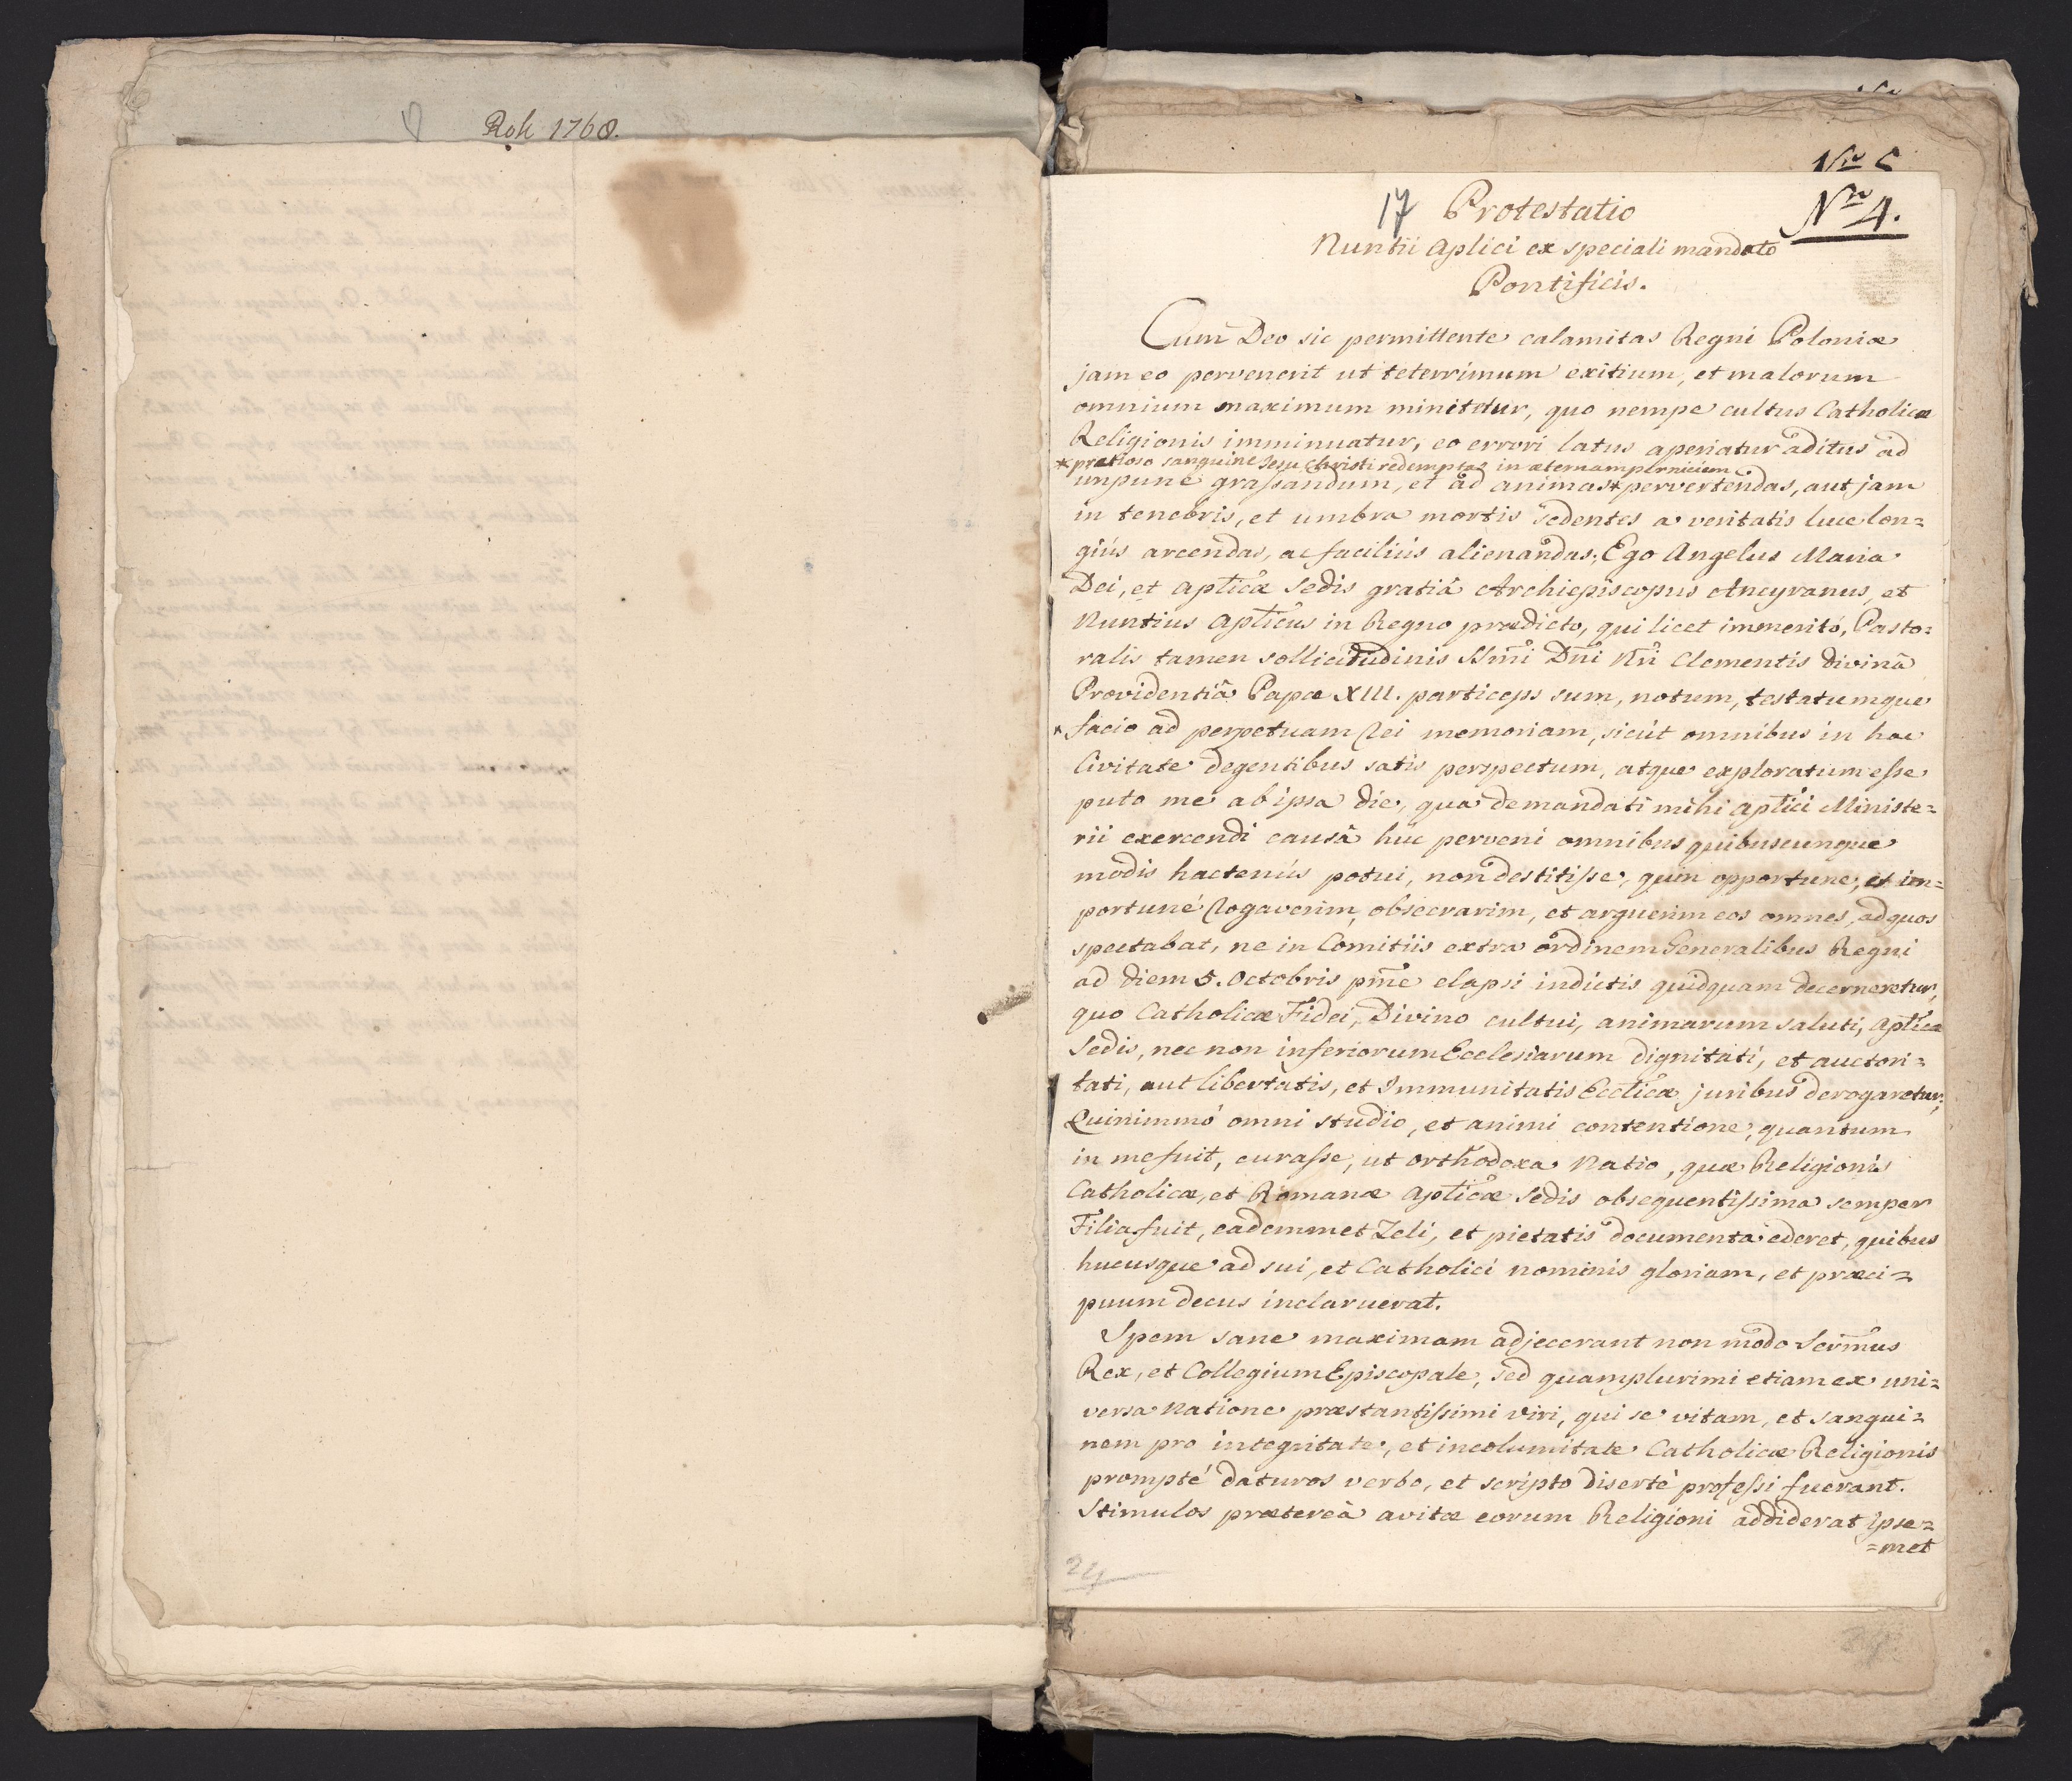 Rok 1768.
Nro 5
17 Protestatio
Nro 4.
Nuntii Aplici ex speciali mandato
Pontificis.
Cum Deo sic permittente calamitas Regni Poloniæ
jam eo pervenerit ut teterrimum exitium, et malorum
omnium maximum minitetur, quo nempe cultus Catholicæ
Religionis imminuatur, eo errori latus aperiatur aditus ad
* pretioso sanguine Jesu Christi redemptas in æternam perniciem
impune grassandum, et ad animas * pervertendas, aut jam
in tenebris, et umbra mortis sedentes a veritatis luce lon=
giùs arcendas, ac faciliùs alienandas; Ego Angelus Maria
Dei, et Aplicæ Sedis gratiâ Archiepiscopus Ancyranus, et
Nuntius Aplicus in Regno prædicto, qui licet immeritò, Pasto=
ralis tamen sollicitudinis SSmi Dni Nri Clementis divinâ
Providentiâ Papæ XIII. particeps sum, notum, testatumque
facio ad perpetuam rei memoriam, sicùt omnibus in hac
Civitate degentibus satis perspectum, atque exploratum esse
puto me ab ipsa die, qua demandati mihi Aplici Ministe=
rii exercendi causâ huc perveni omnibus quibuscunque
modis hactenùs potui, non destitisse, quin opportune, et im=
portunè rogaverim, obsecrarim, et arguerim eos omnes, ad quos
spectabat, ne in Comitiis extra ordinem Generalibus Regni
ad diem 5. Octobris pme elapsi indictis quidquam decerneretur,
quo Catholicæ Fidei, Divino cultui, animarum saluti, Aplicæ
Sedis, nec non inferiorum Ecclesiarum dignitati, et auctori=
tati, aut libertatis, et Immunitatis Ecclicæ juribus derogaretur;
Quinimmò omni studio, et animi contentione, quantum
in me fuit, curasse, ut orthodoxa Natio, quæ Religionis
Catholicæ, et Romanæ Aplicæ Sedis obsequentissima semper
Filia fuit, eademmet Zeli, et pietatis documenta ederet, quibus
hucusque ad sui, et Catholici nominis gloriam, et præci=
puum decus inclaruerat.
Spem sane maximam adjecerant non modo Sermus
Rex, et Collegium Episcopale, sed quamplurimi etiam ex uni=
versa Natione præstantissimi viri, qui se vitam, et sangui=
nem pro integritate, et incolumitate Catholicæ Religionis
promptè daturos verbo, et scripto disertè professi fuerant.
Stimulos prætereà avitæ eorum Religioni addiderat ipse=
=met
24